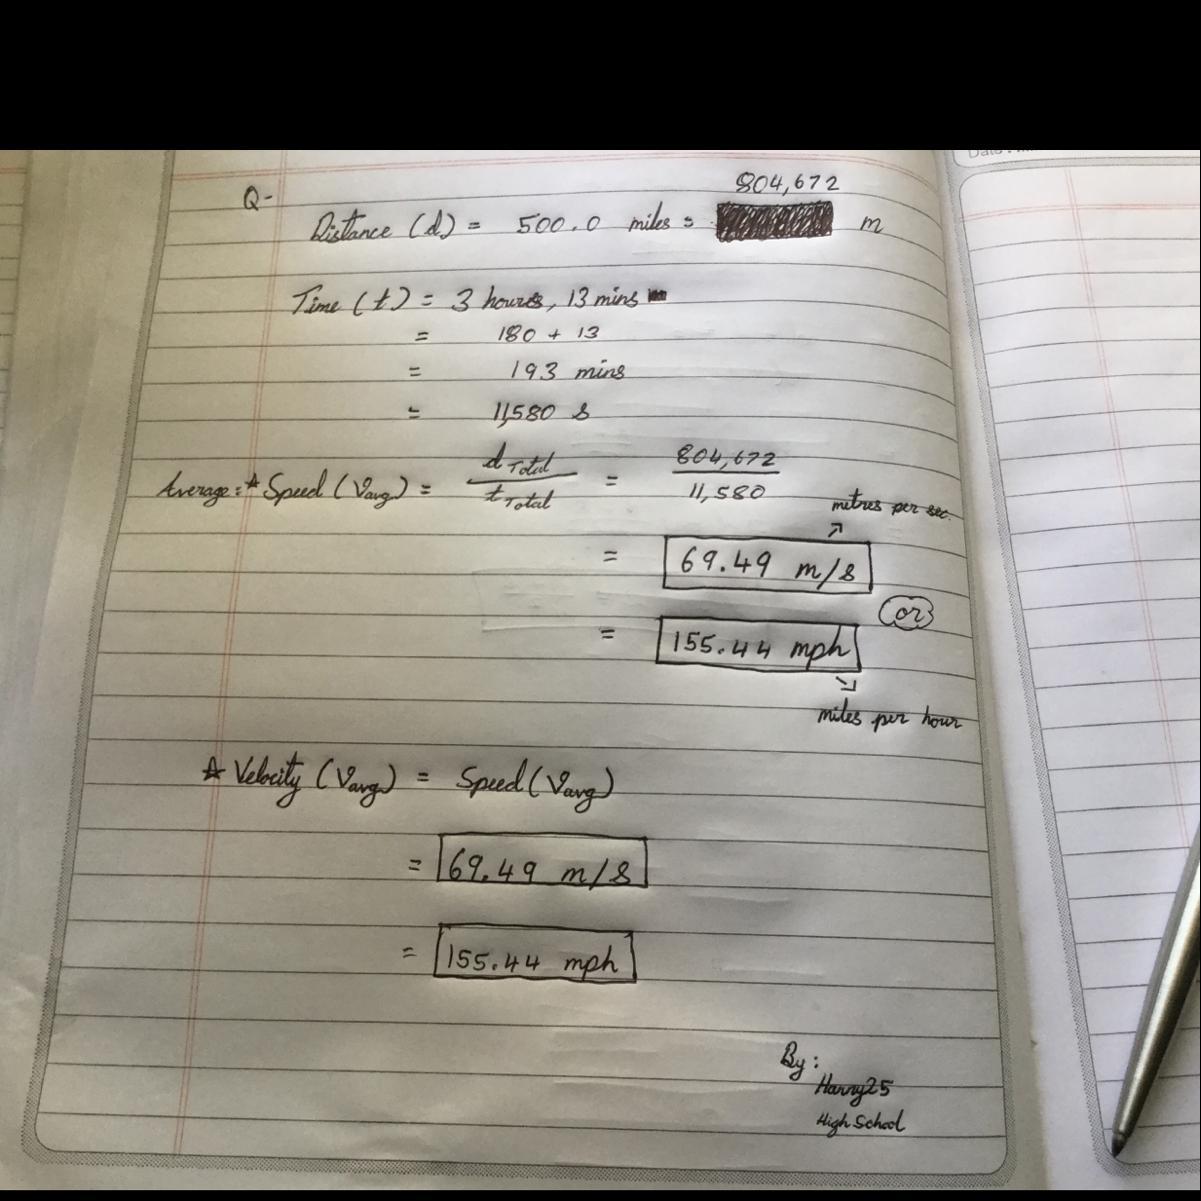 Q-
804,672
Distance (d) = 500.0 miles = m
Time (t) = 3 hours, 13 mins
= 180 + 13
= 193 mins
= 11,580 s
Average: * Speed (Vavg) = d Total / t Total = 804,672 / 11,580
metres per sec.
= 69.49 m/s
or
= 155.44 mph
miles per hour
* Velocity (Vavg) = Speed (Vavg)
= 69.49 m/s
= 155.44 mph
By:
Harry25
High School